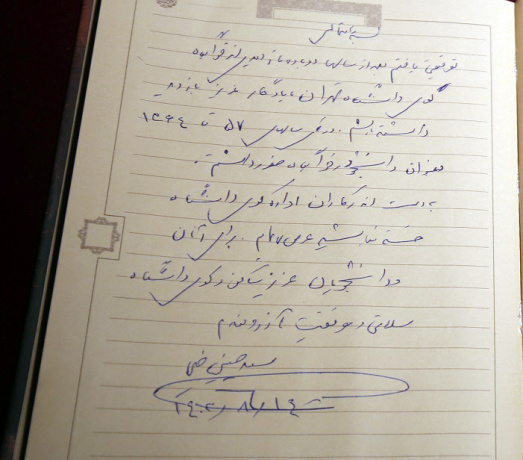 بسمه تعالی
توفیق یافتم بعد از سالها دوباره بازدیدی از خوابگاه
کوی دانشگاه تهران یادگار عزیز بازدید
داشته باشم. در طی سالهای ۵۷ تا ۱۳۶۴
بعنوان دانشجو در خوابگاه حضور داشتم.
به دست اندرکاران اداره کوی دانشگاه
خسته نباشید عرض می‌نمایم. برای آنان
و دانشجویان عزیز ساکن در کوی دانشگاه
سلامتی و موفقیت آرزومندم
سید حسینی
۱۴۰۲/۸/۱۴